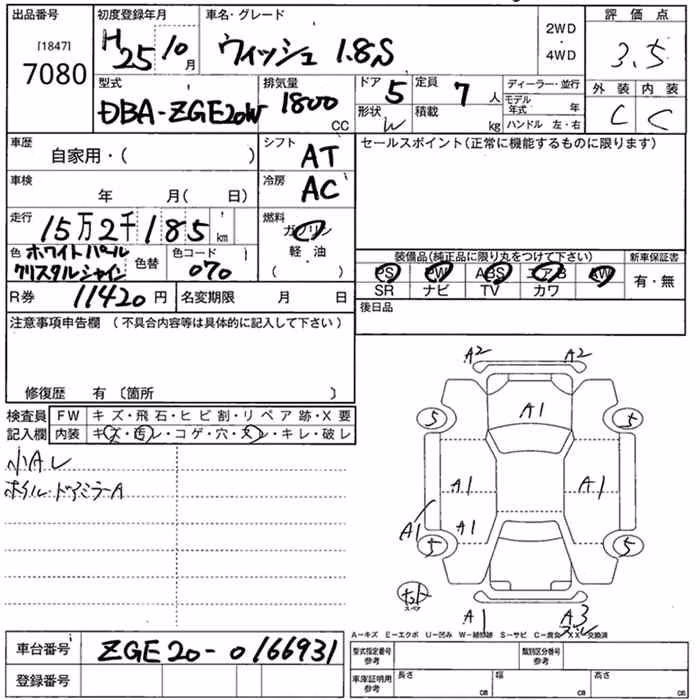 出品番号 初度登録年月 車名・グレード 評価点
[1847] 7080 H25 10月 ウィッシュ 1.8S 2WD・4WD 3.5
外装 内装
C C
型式 排気量 ドア 5 定員 7人 ディーラー・並行
DBA-ZGE20W 1800 CC 形状 W 積載 kg モデル年式 年
ハンドル 左・右
車歴 自家用・( ) シフト AT セールスポイント(正常に機能するものに限ります)
車検 年 月( 日) 冷房 AC
走行 15万2千185km 燃料 ガソリン
軽・油
( )
色 ホワイトパール クリスタルシャイン 色替 色コード 070
装備品(純正品に限り丸をつけて下さい) 新車保証書
PS PW ABS エアB AW 有・無
SR ナビ TV カワ
R券 11420円 名変期限 月 日 後日品
注意事項申告欄 (不具合内容等は具体的に記入して下さい)
修復歴 有 〔箇所 〕
検査員 FW キズ・飛石・ヒビ割・リペア跡・X要
記入欄 内装 キズ・汚レ・コゲ・穴・スレ・キレ・破レ
小Aレ
ホイル・ドアミラーA
A2 A2
A1
5 5
A1 A1
A1 A1
5 5
スペア
A1 A3
A－キズ E－エクボ U－凹み W－補修跡 S－サビ C－腐食 XX－交換済
車台番号 ZGE20-0166931
登録番号
型式指定番号 参考 類別区分番号 参考
車庫証明用 参考 長さ cm 幅 cm 高さ cm